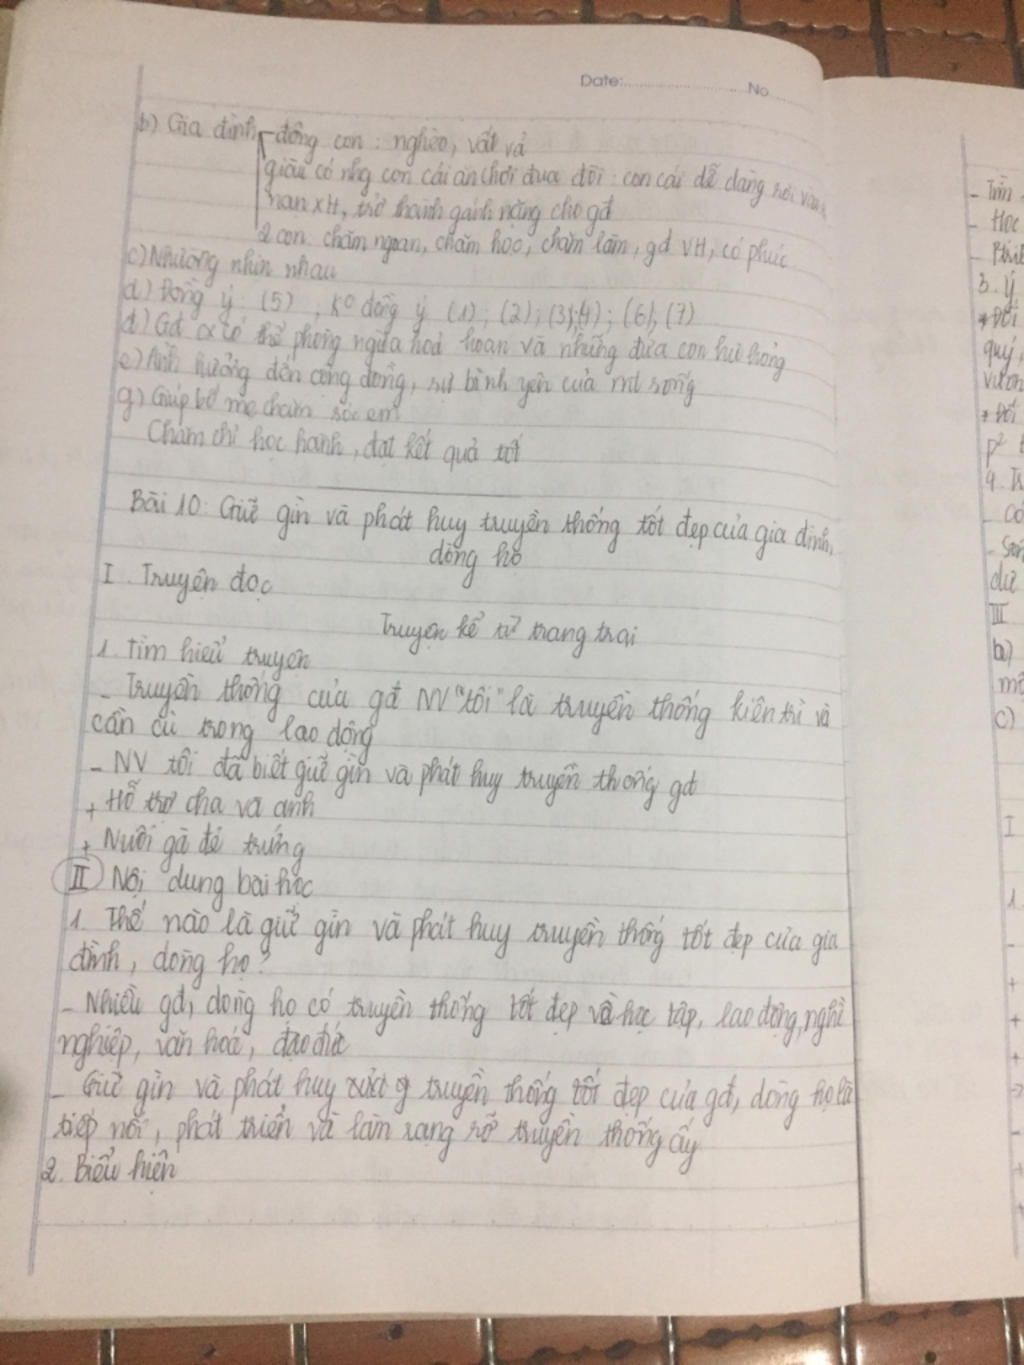 Date: No
b) Gia đình đông con: nghèo, vất vả
giàu có nhg con cái ăn chơi đua đòi: con cái dễ dàng rơi vào
nạn XH, trở thành gánh nặng cho gđ
2 con: chăm ngoan, chăm học, chăm làm, gđ VH, có phúc
c) Nhường nhịn nhau
d) Đồng ý: (5); K° đồng ý (1); (2); (3); (4); (6); (7)
đ) Gđ có thể phòng ngừa hoả hoạn và những đứa con hư hỏng
e) Ảnh hưởng đến cộng đồng, sự bình yên của mt sống
g) Giúp bố mẹ chăm sóc em
Chăm chỉ học hành, đạt kết quả tốt
Bài 10: Giữ gìn và phát huy truyền thống tốt đẹp của gia đình,
dòng họ
I. Truyện đọc
Truyện kể từ trang trại
1. Tìm hiểu truyện
- Truyền thống của gđ NV "tôi" là truyền thống kiên trì và
cần cù trong lao động
- NV tôi đã biết giữ gìn và phát huy truyền thống gđ
+ Hỗ trợ cha và anh
+ Nuôi gà đẻ trứng
II Nội dung bài học
1. Thế nào là giữ gìn và phát huy truyền thống tốt đẹp của gia
đình, dòng họ?
- Nhiều gđ, dòng họ có truyền thống tốt đẹp về học tập, lao động, nghề
nghiệp, văn hoá, đạo đức
- Giữ gìn và phát huy truyền thống tốt đẹp của gđ, dòng họ là
tiếp nối, phát triển và làm rạng rỡ truyền thống ấy
2. Biểu hiện
- Học
3. Ý
quý,
+ Đối
III
b)
c)
I
1.